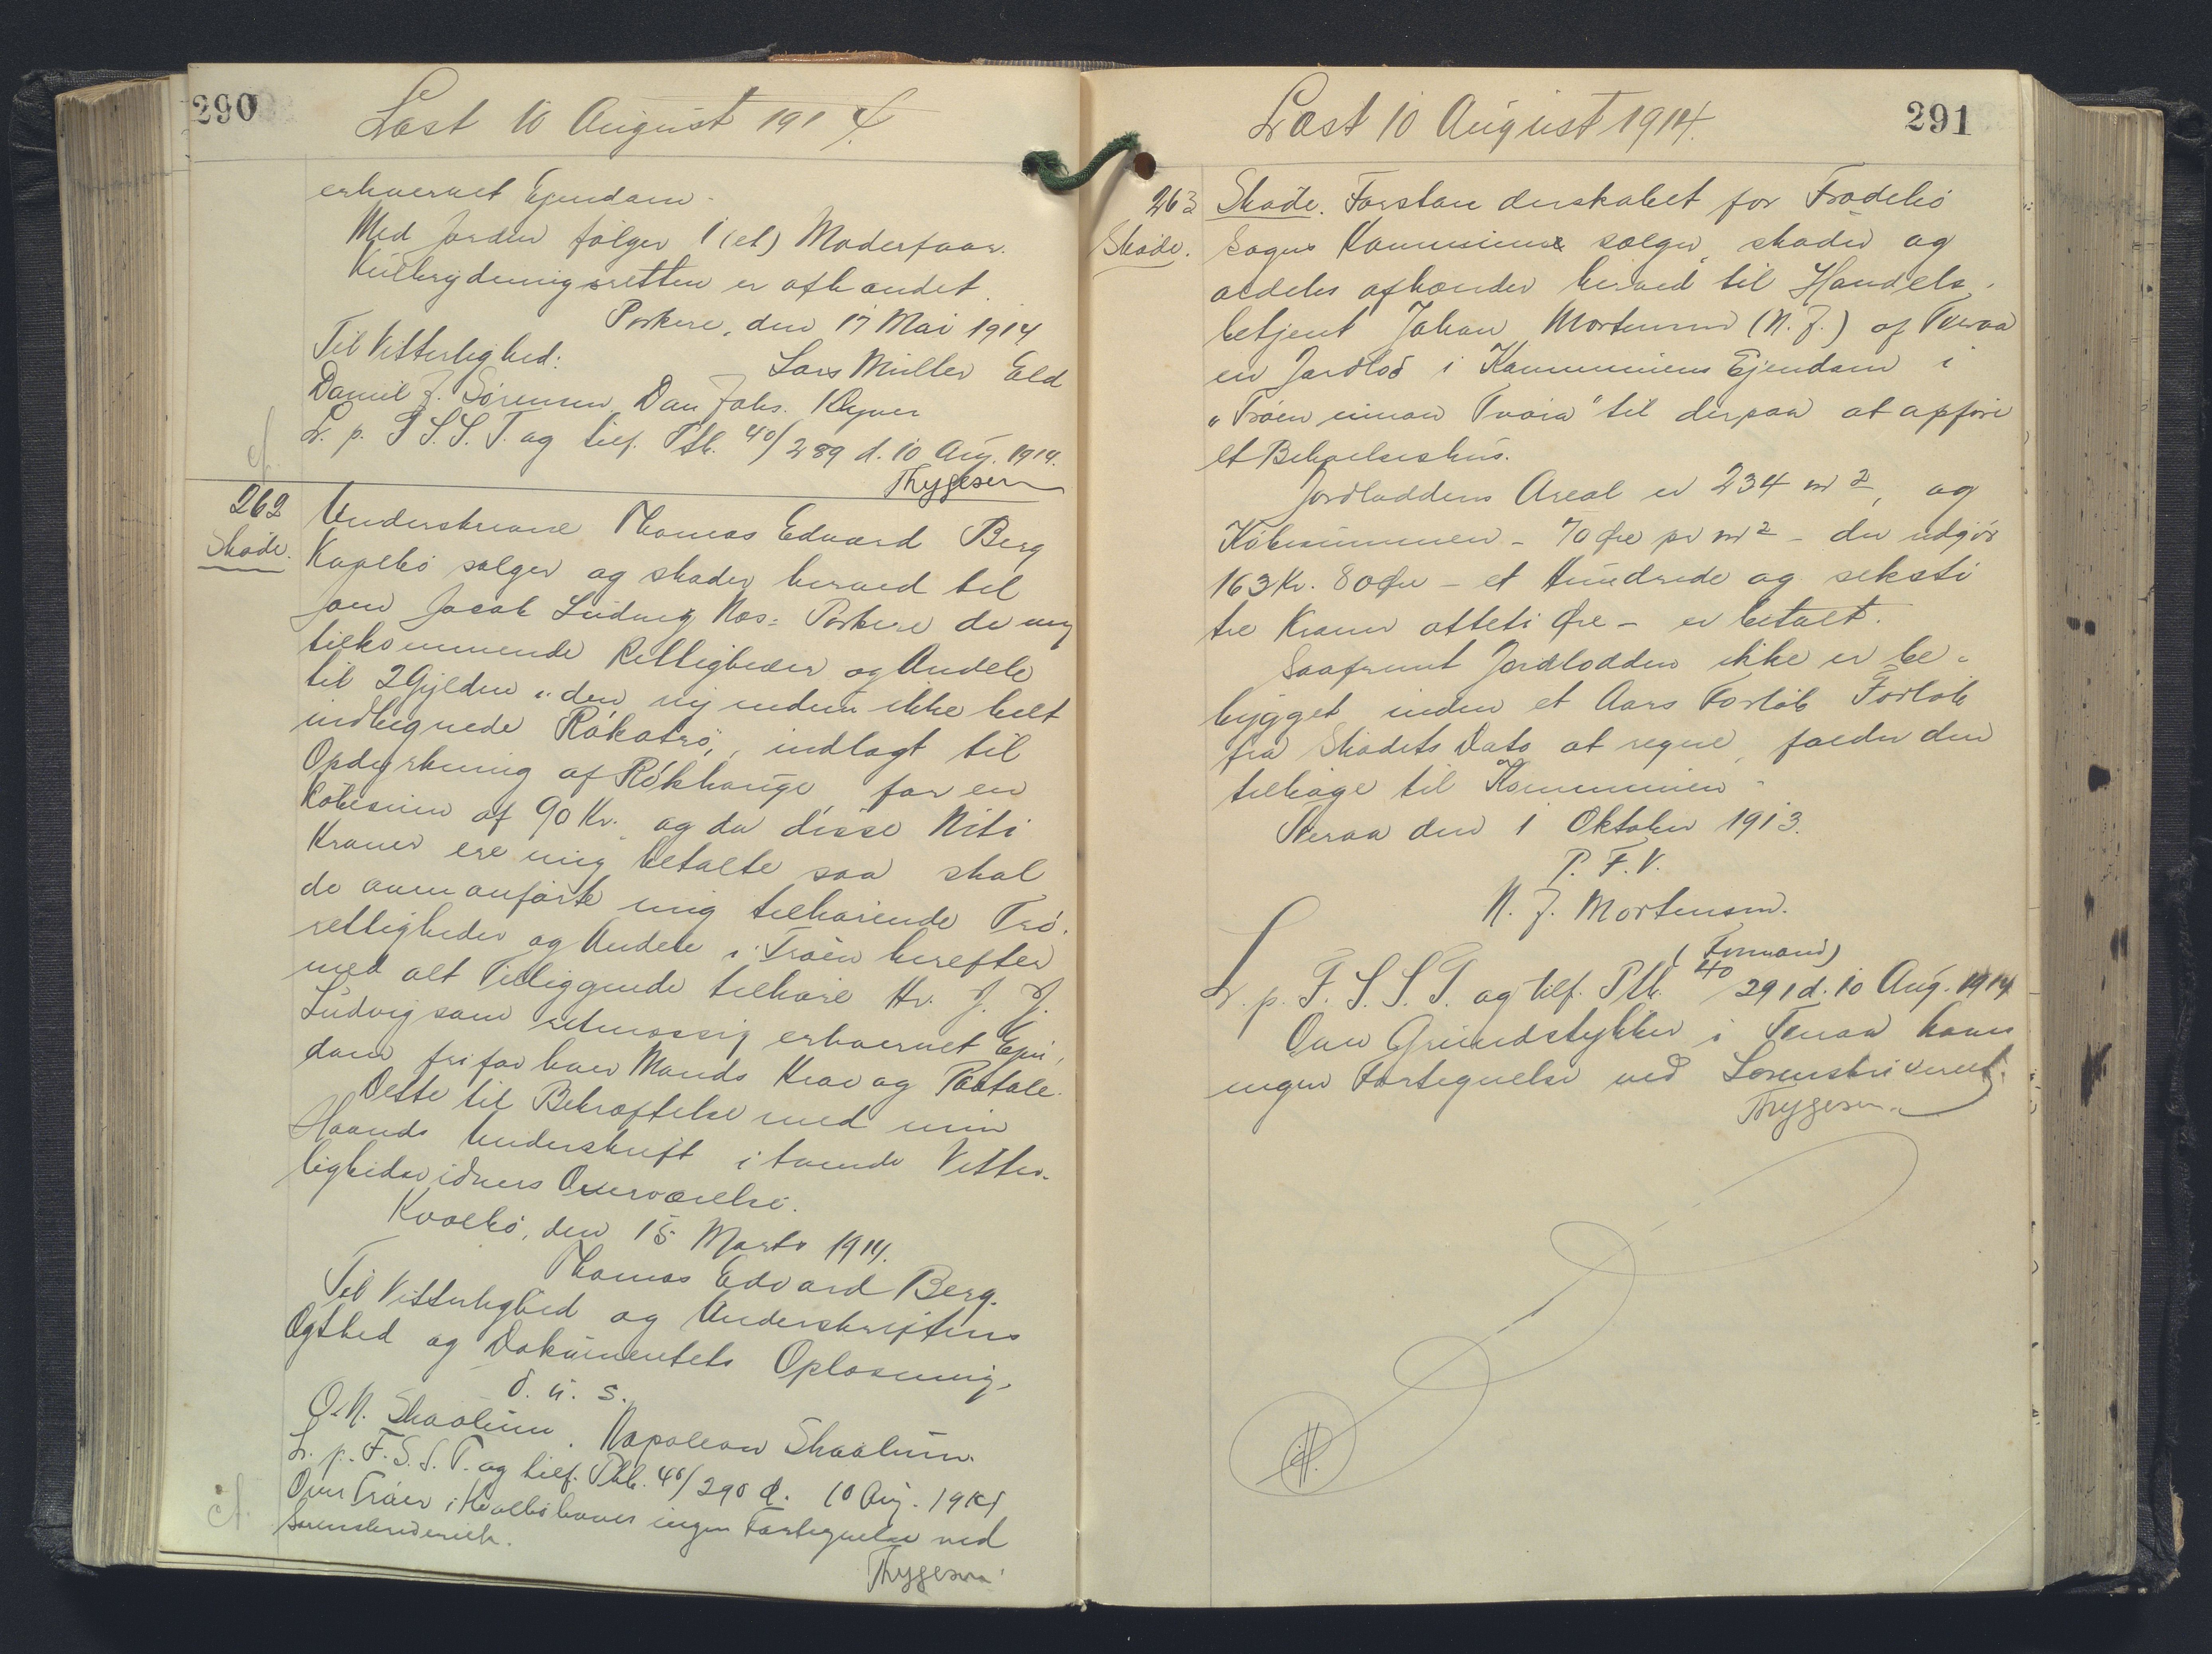 290
Læst 10 August 1914.
erhvervet Ejendom.
Med Jorden følger 1 (et) Moderfaar.
Kulbrydningsretten er afhændet.
Porkere, den 17 Mai 1914
Til Vitterlighed: Lars Müller Eld
Daniel J. Sörensen Dan Johs. Klyver
L. p. F. S. S. T. og tilf. Ptk. 40/289 d. 10 Aug. 1914.
Thygesen
cf.
262
Skøde.
Underskrevne Thomas Edvard Berg
Kvalbø sælger og skøder herved til
Jens Jacob Ludvig Næs= Porkere de mig
tilkommende Rettigheder og Andele
til 2 Gylden i den nyendnu ikke helt
indhegnede Rókatrö, indlagt til
Opdyrkning af Rókhauge for en
Købesum af 90 Kr. og da disse Niti
Kroner ere mig betalte saa skal
de ovenanførte mig tilhørende Trö.
rettigheder og Andele i Tröen herefter
med alt Tilliggende tilhøre Hr. J. J.
Ludvig som retmæssig erhvervet Ejen,
dom fri for hver Mands Krav og Paatale.
Dette til Bekræftelse med min
Haands Underskrift i tvende Vitter-
lighedsvidners Overværelse.
Kvalbø, den 15 Marts 1914.
Thomas Edvard Berg.
Til Vitterlighed og Underskriftens
Ægthed og Dokumentets Oplæsning.
d. u. s.
O. N. Skaalum. Napoleon Skaalum.
L. p. F. S. S. T. og tilf. Ptk. 40/290 d. 10 Aug. 1914
Over Tröer i Kvalbø haves ingen Fortegnelse ved
Sorenskriveriet.
Thygesen
cf.
291
Læst 10 August 1914.
263
Skøde.
Skøde. Forstanderskabet for Frodebö
Sogns Kommune sælger, skøder og
aldeles afhænder herved til Handels,
betjent Johan Mortensen (N. J.) af Tveraa
en Jordlod i Kommunens Ejendom i
"Tröen innan Tvøra" til derpaa at opføre
et Beboelseshus.
Jordloddens Areal er 234 m2, og
Købesummen - 70 Øre pr m2 - der udgør
163 Kr. 80 Øre - et Hundrede og seksti
tre Kroner otteti Øre - er betalt.
Saafremt Jordlodden ikke er be-
bygget inden et Aars Forløb Forløb
fra Skødets Dato at regne, falder den
tilbage til Kommunen.
Tveraa den 1 Oktober 1913.
P. F. V.
N. J. Mortensen.
(Formand)
L. p. F. S. S. T. og tilf. Ptk. 40/291 d. 10 Aug. 1914
Over Grundstykker i Tveraa haves
ingen Fortegnelse ved Sorenskriveriet.
Thygesen